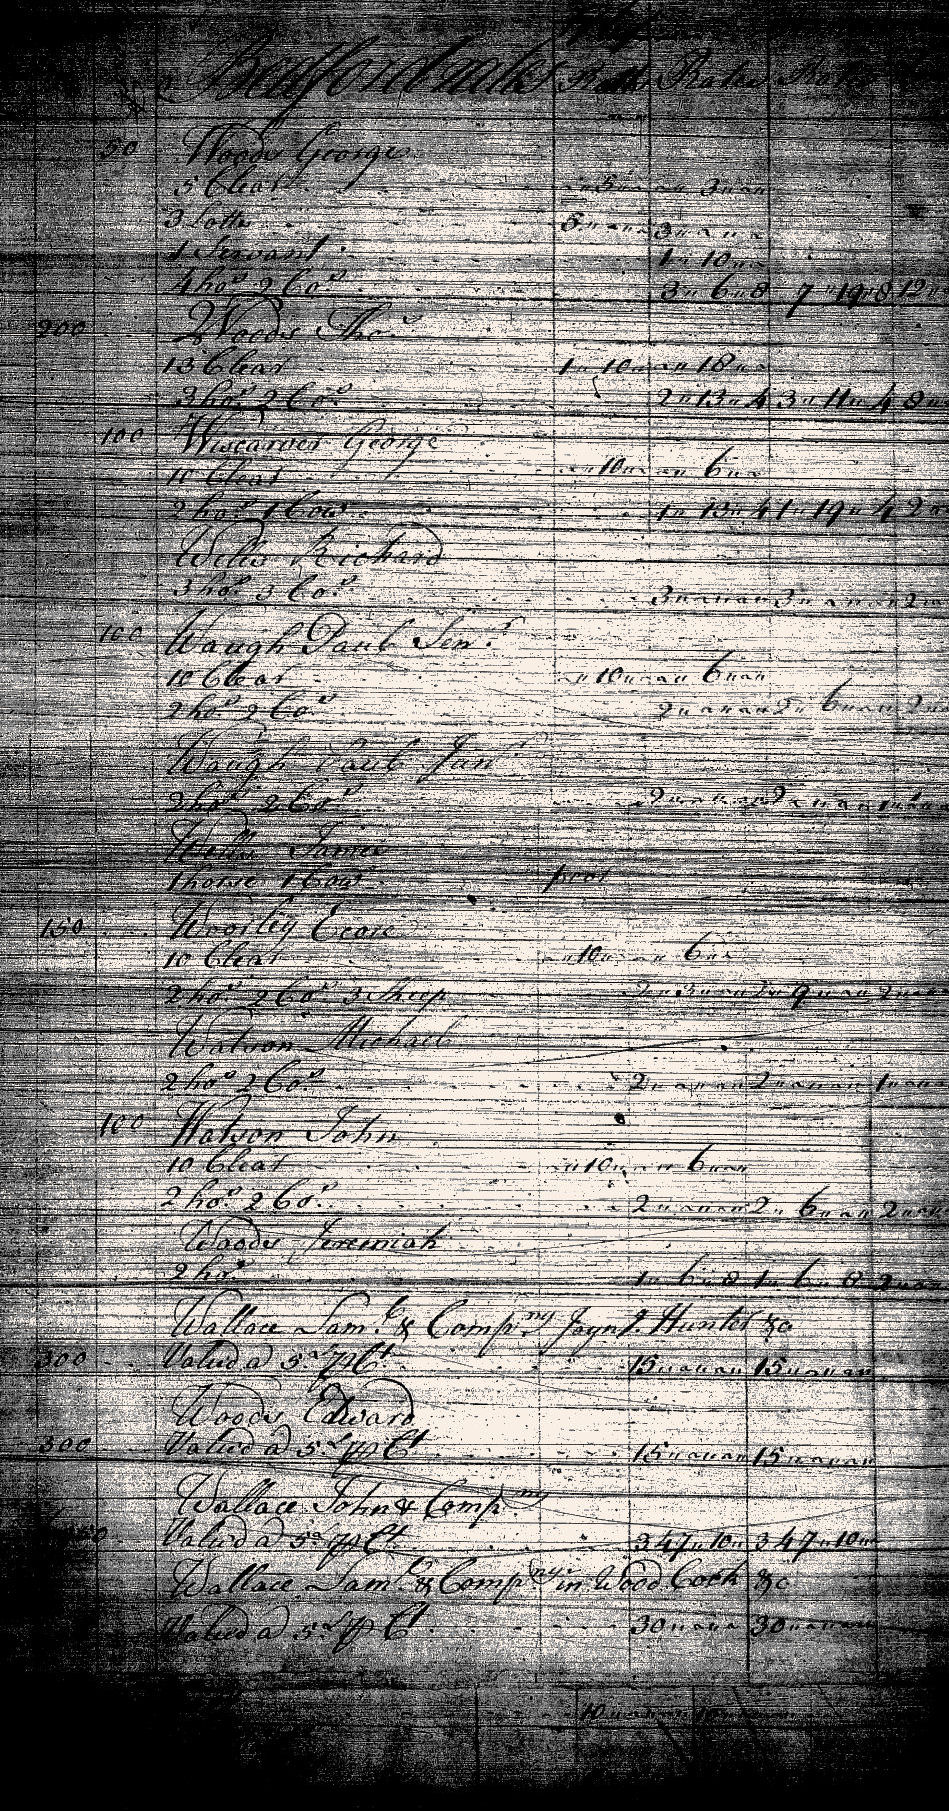 Bedford Rates Rates
50 Woods George
5 Clear 5 " " " 3 " "
3 Lotts 5 " " " 3 " " "
1 Servant 1 " 10 " "
4 hos 2 Cos 3 " 6 " 8 7 " 19 " 8 12
200 Woods Thos
13 Clear 1 " 10 " " " 18 " "
3 hos 2 Cos 2 " 13 " 4 3 " 11 " 4 8
100 Wiscarver George
10 Clear " 10 " " " 6 " "
2 hos 1 Cow 1 " 13 " 4 1 " 19 " 4 2
Wells Richard
3 hos 3 Cos 3 " " " 3 " " " 2
100 Waugh Paul Senr
10 Clear " 10 " " " 6 " "
2 hos 2 Cos 2 " " " 2 " 6 " " 2
Waugh Paul Junr
2 hos 2 Cos 2 " " " 2 " " "
Wells James
1 horse 1 Cow poor
150 Worley
10 Clear " 10 " " " 6 " "
2 hos 2 Cos 3 Sheep 2 " 3 " " 2 " 9 " " 2
Watson Michael
2 hos 2 Cos 2 " " " 2 " " " 1
100 Watson John
10 Clear " 10 " " " 6 " "
2 hos 2 Cos 2 " " " 2 " 6 " " 2
Woods Jeremiah
2 hos 1 " 6 " 8 1 " 6 " 8 2
Wallace Saml & Compny Joyng Hunter &c
300 Valued a 5d p Ct 15 " " " 15 " " "
Woods Edward
300 Valued a 5d p Ct 15 " " " 15 " " "
Wallace John & Compny
Valued a 5d p Ct 347 " 10 " 347 " 10 "
Wallace Saml & Compny in Wood Cock &c
Valued a 5d p Ct 30 " " " 30 " " "